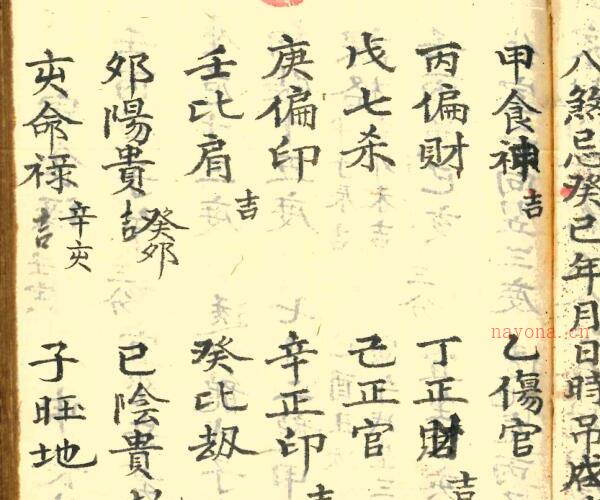 八煞忌癸巳年月日時吊
甲食神吉
乙傷官
丙偏財
丁正財吉
戊七杀
己正官
庚偏印
辛正印吉
壬比肩吉
癸比刼
卯陽貴吉癸卯
巳陰貴
亥命禄吉辛亥
子旺地
nayona.cn